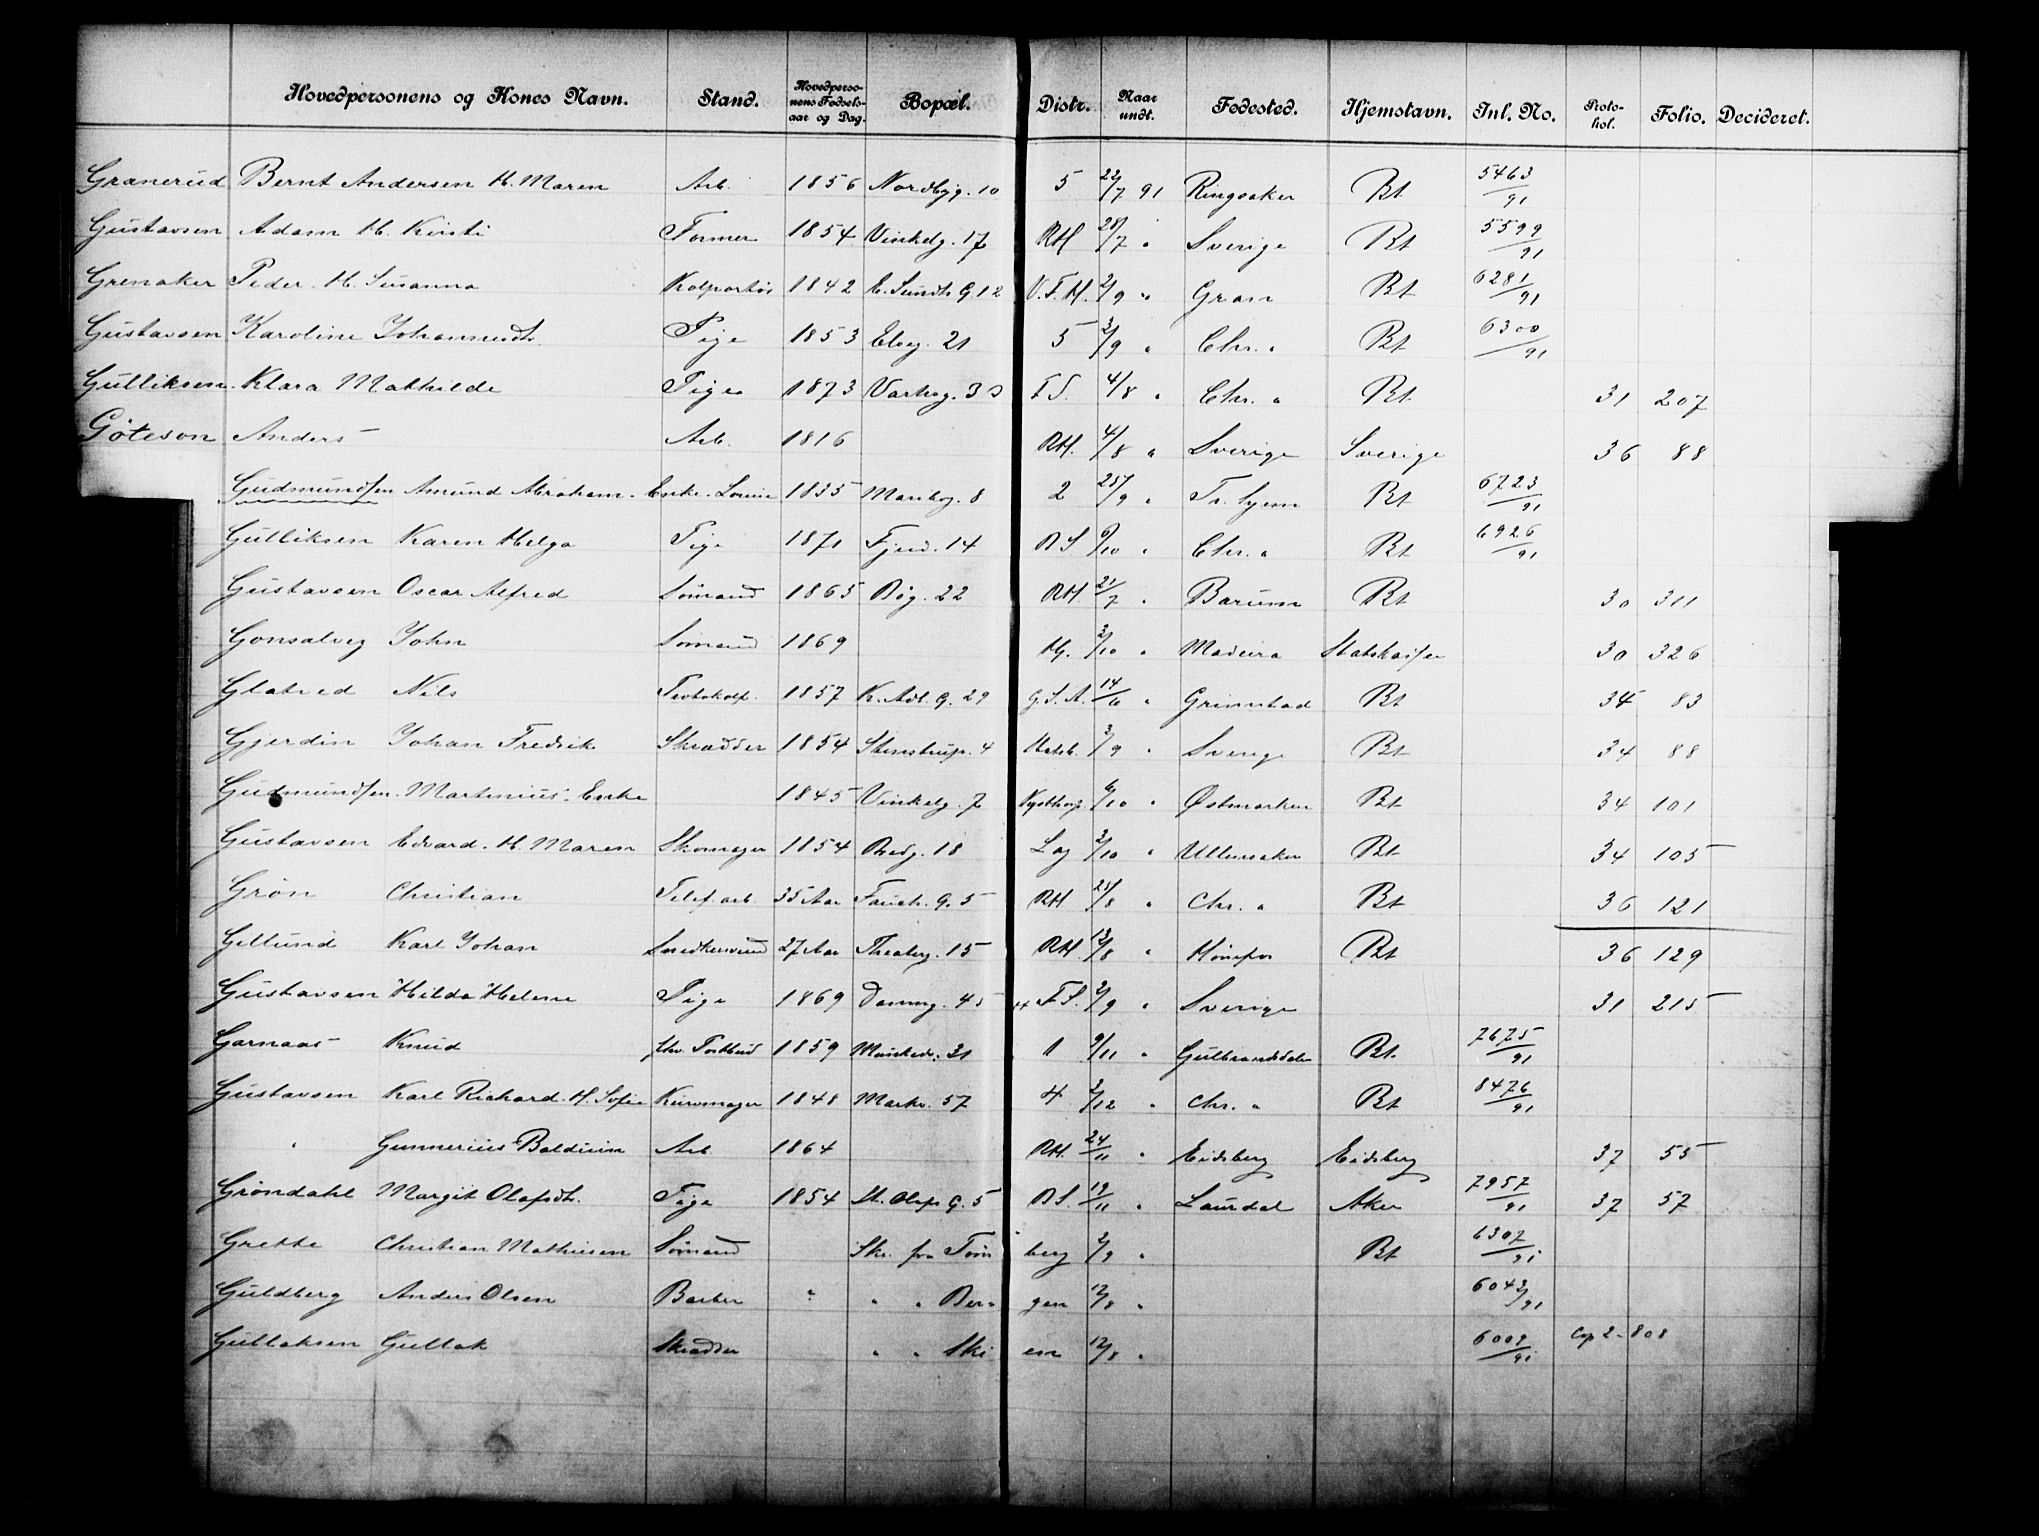 Hovedpersonens og Kones Navn. Stand. Hovedperso-nens Fødsels-aar og Dag. Bopæl. Distr. Naar undt. Fødested. Hjemstavn. Inl. No. Proto-kol. Folio. Decideret.
Granerud Bernt Andersen H. Maren Arb. 1856 Nordbyg. 10 5 22/7 91 Ringsaker Bt 5463/91
Gustavsen Adam H. Kirsti Former 1854 Vinkelg. 17 RH 28/7 " Sverige Bt 5599/91
Grenaker Peder H. Susanna Kolportør 1842 E. Sundts G. 12 V.F.H. 2/9 " Gran Bt 6281/91
Gustavsen Karoline Johannesdt. Pige 1853 Elvg. 21 5 3/9 " Chr. a Bt 6300/91
Gulliksen Klara Mathilde Pige 1873 F.S. 4/8 " Chr. a Bt 31 207
Göteson Anders Arb. 1816 RH. 4/8 " Sverige Sverige 36 88
Gudmundsen Amund Abraham. Enke. 1835 Maribog. 8 2 25/9 " Bt 6723/91
Gulliksen Karen Helga Pige 1871 Fjerd. 14 BS 6/10 " Chr. a Bt 6926/91
Gustavsen Oscar Alfred Sømand 1865 Bøg. 22 RH. 21/7 " Barum Bt 30 311
Gonsalves John Sømand 1869 Hg. 2/10 " Madeira Statskassen 30 326
Nils 1857 K. Adl. G. 29 G.S.A. 14/6 " Grimstad Bt 34 83
Gjerdin Johan Fredrik Skrædder 1854 Stenstrup. 4 3/9 " Sverige Bt 34 88
Gudmundsen Martinius' Enke 1845 Vinkelg. 7 6/10 " Østmarken Bt 34 101
Gustavsen Edvard. H. Maren Skomager 1854 Bredg. 18 Lag 3/10 " Ullensaker Bt 34 105
Grön Christian Telef. arb. 35 Aar G. 5 RH 25/8 " Chr. a Bt 36 121
Gullund Karl Johan Snedkersvend 27 Aar Theaterg. 15 RH. 13/8 " Hønefos Bt 36 129
Gustavsen Hilda Helene Pige 1869 Dammg. 45 F.S. 2/9 " Sverige 31 215
Garnaas Knud fhv. Postbud 1859 Munkedv. 31 1 9/11 " Gulbrandsdalen Bt. 7675/91
Gustavsen Karl Richard. H. Sofie Kurvmager 1848 Markv. 57 4 2/12 " Chr. a Bt 8476/91
" Gunnerius Balduin Arb. 1864 RH. 24/11 " Eidsberg Eidsberg 37 55
Gröndahl Margit Olafsdt. Pige 1854 St. Olafs G. 5 BS. 19/11 " Laurdal Aker 7957/91 37 57
Grette Christian Mathiesen Sømand Skr. fra Tøns berg 2/9 " Bt 6307/91
Guldberg Anders Olsen Barber " " " Ber- gen 12/8 " 6043/91
Gullaksen Gullak Skrædder " " Ski en 12/8 " 6009/91 Cop 2-808